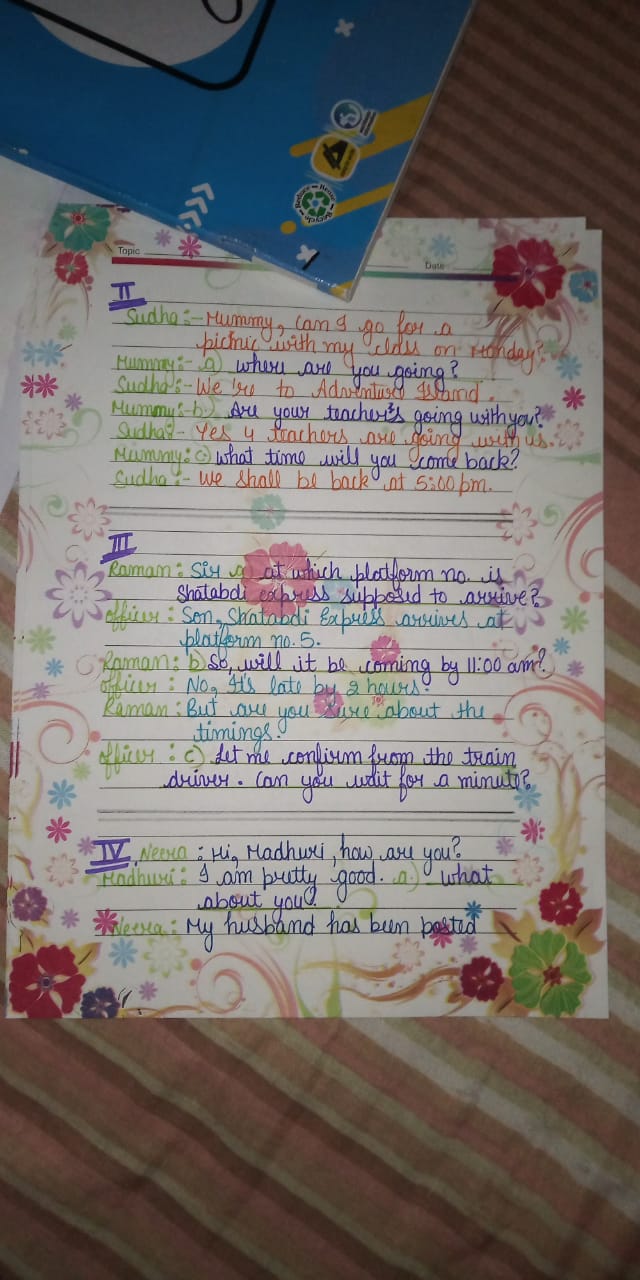 Reduce Reuse Recycle
Topic
Date
II
Sudha :- Mummy, can I go for a
picnic with my class on Monday?
Mummy:- a) where are you going?
Sudha :- We're to Adventure Island.
Mummy:- b) Are your teacher's going with you?
Sudha :- Yes 4 teachers are going with us.
Mummy: c) what time will you come back?
Sudha :- We shall be back at 5:00 pm.
III
Raman : Sir a) at which platform no. is
Shatabdi express supposed to arrive?
officer : Son, Shatabdi Express arrives at
platform no. 5.
Raman : b) So, will it be coming by 11:00 am?
officer : No, It's late by 2 hours.
Raman : But are you sure about the
timings.
officer : c) Let me confirm from the train
driver. Can you wait for a minute?
IV Neera : Hi, Madhuri, how are you?
Madhuri : I am pretty good. a.) what
about you?
Neera : My husband has been posted